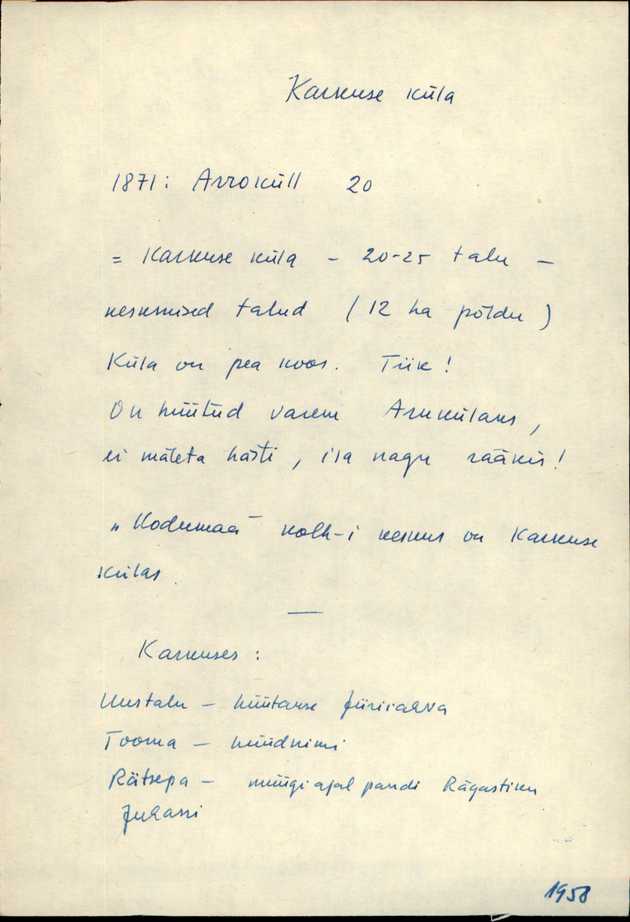 Karkuse küla
1871: Arroküll 20
= Karkuse küla - 20-25 talu -
keskmised talud (12 ha põldu)
Küla on pea koos. Tiik!
On hüütud varem Arukülaks,
ei mäleta hästi, isa nagu rääkis!
"Kodumaa" kolh-i keskus on Karkuse
külas.
Karkuses:
Uustalu - hüütakse Jüriraeva
Tooma - hüüdnimi
Rätsepa - müügi ajal pandi Rägastiku
Juhani
1958